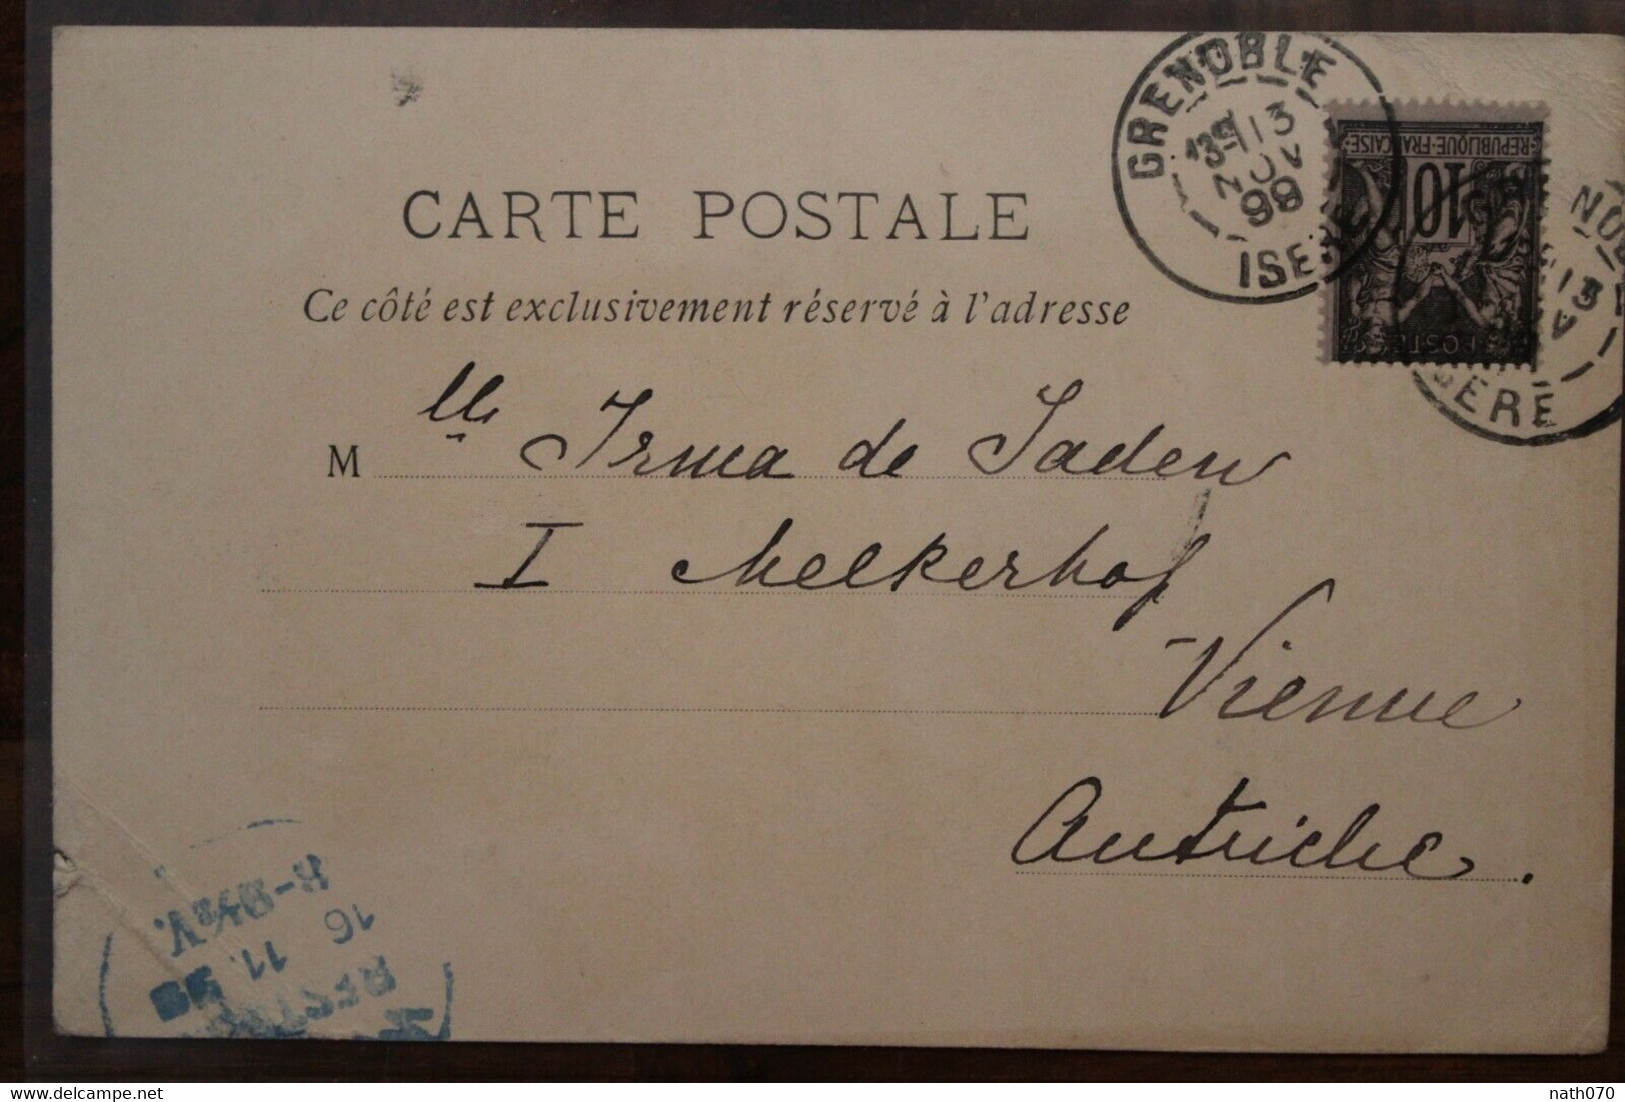 GRENOBLE
13 NOV
99
ISERE
REPUBLIQUE-FRANÇAISE
10
POSTE
NOBLE
13
ISERE
CARTE POSTALE
Ce côté est exclusivement réservé à l'adresse
M lle Irma de Jaden
I Melkerhof
Vienne
Autriche.
16 11. 99
nath070